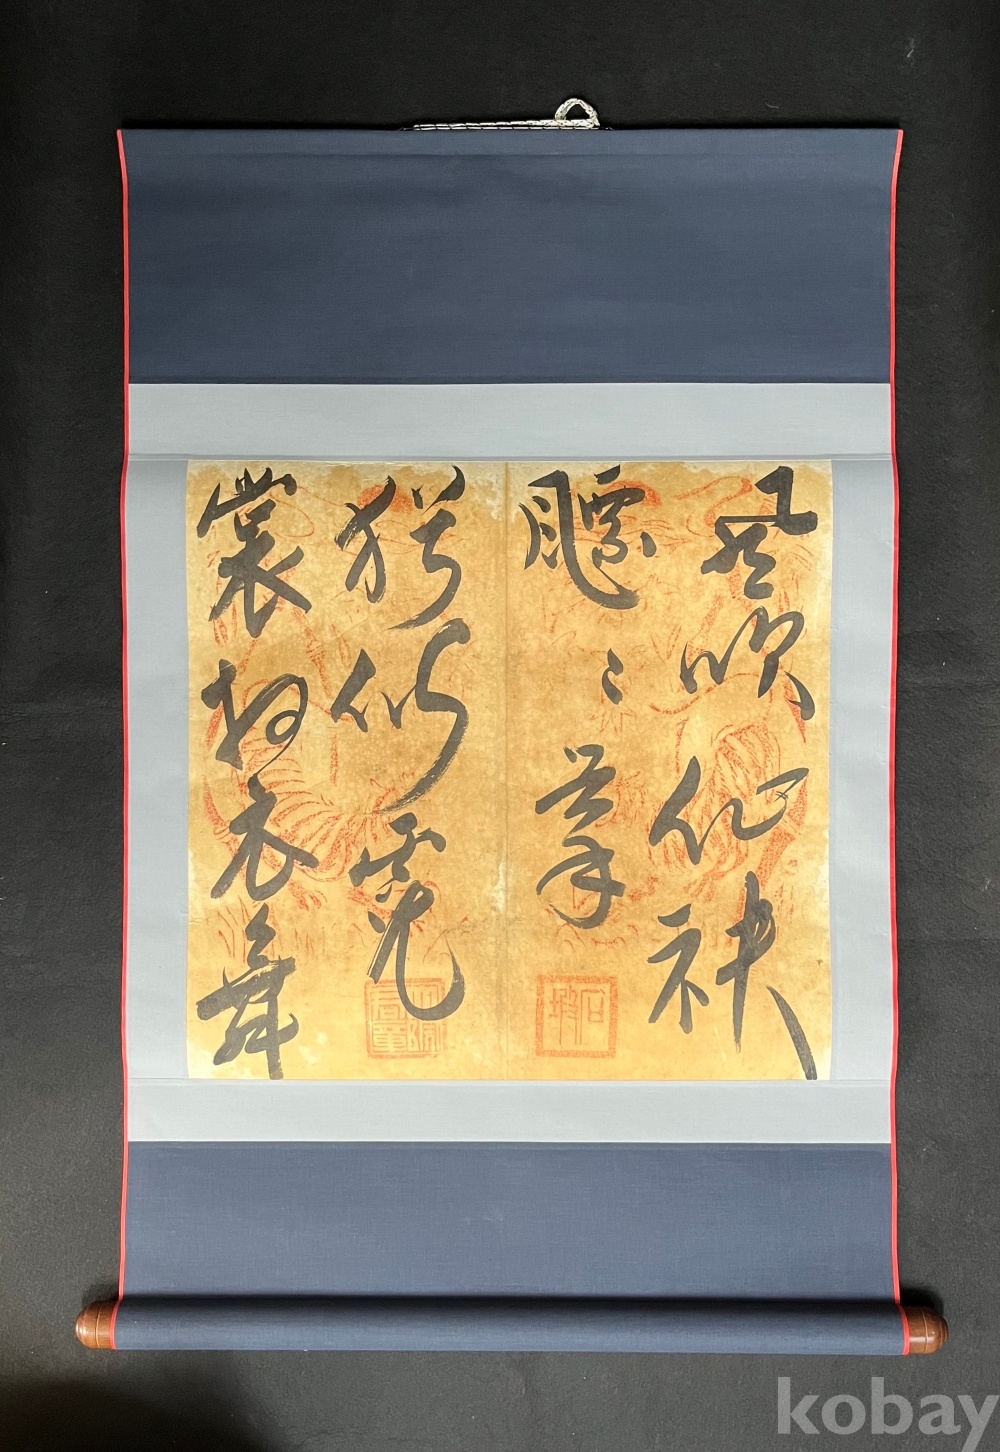 風吹仙袂
飄〻擧
猶似霓
裳羽衣舞
石
kobay